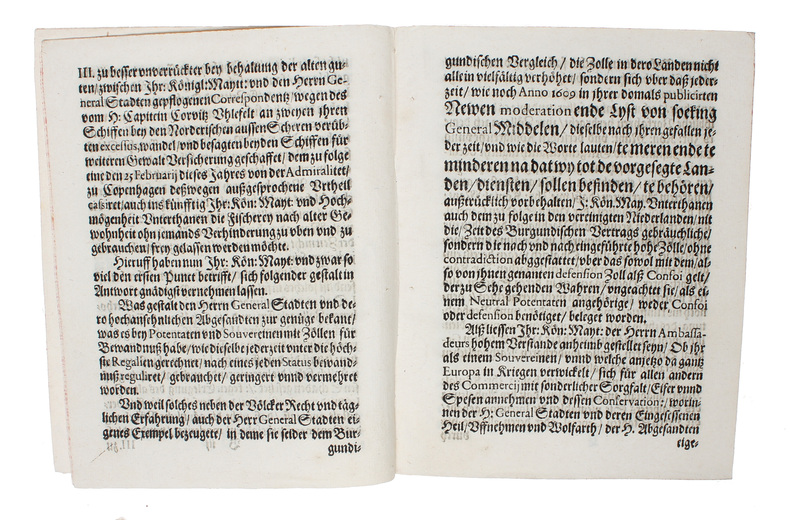 III. zu besser vnverrückter bey behaltung der alten gu-
ten/zwischen Ihr: Königl: Mayt: vnd den Herrn Ge-
neral Stadten gepflogenen Correspondentz/wegen des
vom H: Capitein Corvitz Vhlefelt an zweyen ihren
Schiffen bey den Norderischen aussen Scheren verüb-
ten excessus, wandel/vnd besagten beyden Schiffen für
weiteren Gewalt Versicherung geschaffet/dem zu folge
eine den 25 Februarij dieses Jahres von der Admiralitet/
zu Copenhagen deßwegen außgesprochne Vrtheil
cassiret/auch ins fünfftig Ihr: Kön: Mayt: vnd Hoch-
mögenheit Vnterthanen die Fischerey nach alter Ge-
wohnheit ohn jemands Verhinderung zu vben vnd zu
gebrauchen/frey gelassen werden möchte.
Hierauff haben nun Ihr: Kön: Mayt: vnd zwar so
viel den ersten Punct betrifft/ sich folgender gestalt in
Antwort gnädigst vernehmen lassen.
Was gestalt den Herrn General Stadten vnd de-
ro hochansehnlichen Abgesandten zur genüge bekant/
was es bey Potentaten vnd Souverainen mit Zöllen für
Bewandnuß habe/wie dieselbe jederzeit vnter die höch-
ste Regalien gerechnet/nach eines jeden Status bewand-
nuß reguliret/ gebrauchet/ geringert vnnd vermehret
worden.
Vnd weil solches neben der Völcker Recht vnd täg-
lichen Erfahrung/ auch der Herr General Stadten ei-
genes Exempel bezeugete/ in deme sie selder dem Bur-
gundi-
gundischen Vergleich/ die Zolle in dero Landen nicht
allein vielfältig verhöhet/ sondern sich vber daß jeder-
zeit/ wie noch Anno 1609 in jhrer domals publicirten
Newen moderation ende Lyst von soeking
General Middelen/ dieselbe nach jhren gefallen je-
der zeit/ vnd wie die Worte lauten/ te meren ende te
minderen na dat wy tot de vorgesegte Lan-
den/diensten/ sollen befinden/ te behören/
außtrücklich vorbehalten/ J: Kön. May. Vnterthanen
auch dem zu folge in den vereinigten Niederlanden/nit
die/Zeit des Burgundischen Vertrags gebräuchliche/
sondern die nach vnd nach eingeführte hohe Zölle/ohne
contradiction abgestattet/vber das sowol mit dem/al-
so von jhnen genanten defension Zoll alß Confoi gelt/
der zu Sehe gehenden Wahren/ vngeachtet sie/als ei-
nem Neutral Potentaten angehörige/ weder Confoi
oder defension benötiget/ beleget worden.
Alß liessen Ihr: Kön: Mayt: der Herrn Ambassa-
deurs hohem Verstande anheimb gestellet seyn/ Ob ihr
als einem Souverainen/ vnnd welche anjetzo da gantz
Europa in Kriegen verwickelt/ sich für allen andern
des Commercij mit sonderlicher Sorgfalt/ Eifer vnnd
Spesen annehmen vnd dessen Conservation:/ worin-
nen der H: General Stadten vnd deren Eingesessenen
Heil/ Vffnehmen vnd Wolfarth/ der H. Abgesandten
eige-